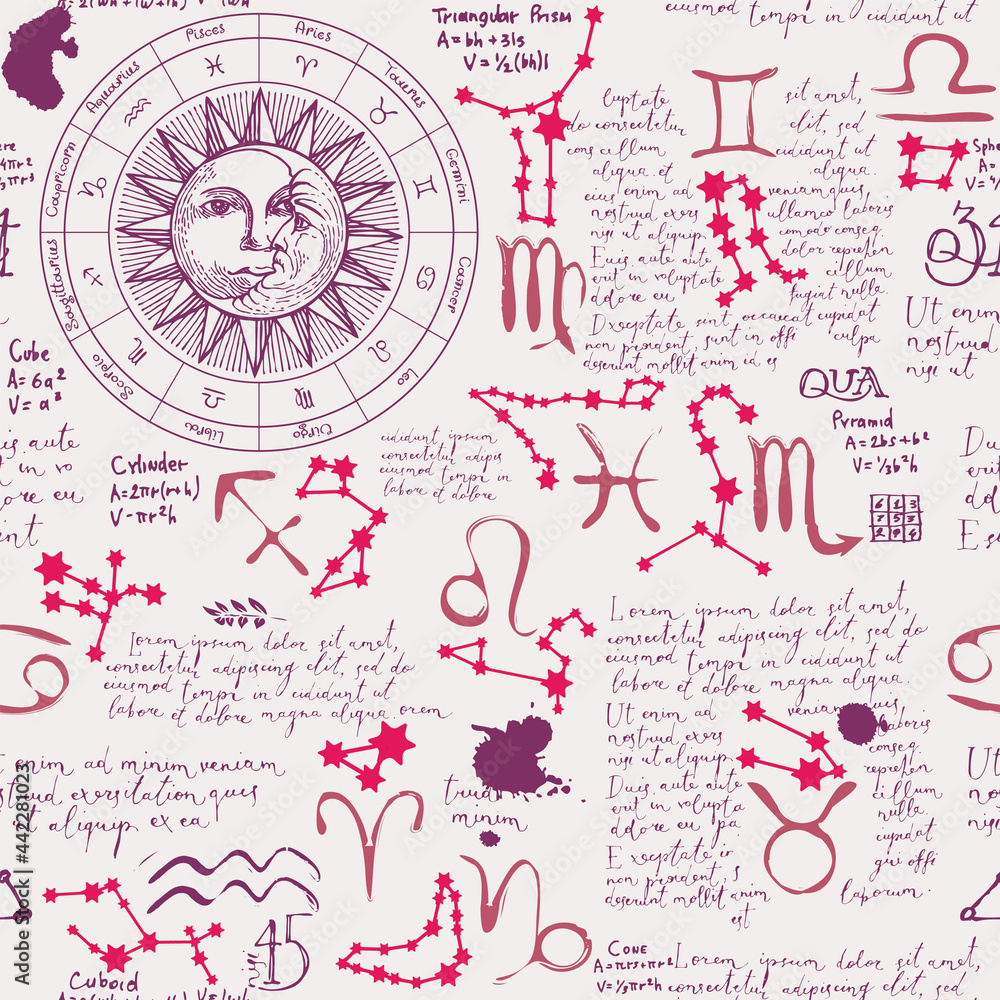 Triangular Prism
A=bh+3ls
V=1/2(bh)l
eiusmod
tempi in cididunt ut
Pisces
Aries
Taurus
Gemini
Cancer
Leo
Virgo
Libra
Scorpio
Sagittarius
Capricorn
Aquarius
luptate
do consectetur
cons cillum
aliqua. et
eius enim ad
nostrud exers
nisi ut aliquip
Euis. aute aute
erit in voluptate
dolore eu
sit amet,
elit, sed
cididunt ut
aliqua.
veniam quis,
ullamco laboris
comodo conseq.
dolor reprehen
cillum
fugiat nulla
Dxceptate sint occaecat cupidat
non proident, sunt in offi culpa
deserunt mollit anim id es
Sphe
A=
34
Q
Ut enim
nostrud
nisi ut
Cube
A=6a²
V=a³
QUA
Pyramid
A=2bs+b²
V=1/3b²h
6 1 3
7 5 3
2 9 4
cididunt ipsum
consectetur adipis
eiusmod tempi in
labore et dolore
Cylinder
A=2πr(r+h)
V-πr²h
Duis. aute
t in vo
dolore eu
int
Lorem ipsum dolor sit amet,
consectetur adipiscing elit, sed do
eiusmod tempi in cididunt ut
labore et dolore magna aliqua. orem
Lorem ipsum dolor sit amet,
consectetur adipiscing elit, sed do
eiusmod tempi in cididunt ut
labore et dolore magna aliqua.
Ut enim ad veniam quis,
nostrud exers laboris
nisi ut aliquip conseq.
Duis. aute aute reprehen
erit in volupta cillum
dolore eu pa nulla
Exceptate ir cupidat
non proident, s qui offi
deserunt mollit anim laborum.
est
enim ad minim veniam
strud exersitation ques
t aliquip ex ea
trud
minim
45
Cuboid
Cone
A=πrs+πr²
V=1/3πr²h
Lorem ipsum dolor sit amet,
consectetur adipiscing elit, sed do
Adobe Stock | #442281023
Adobe Stock